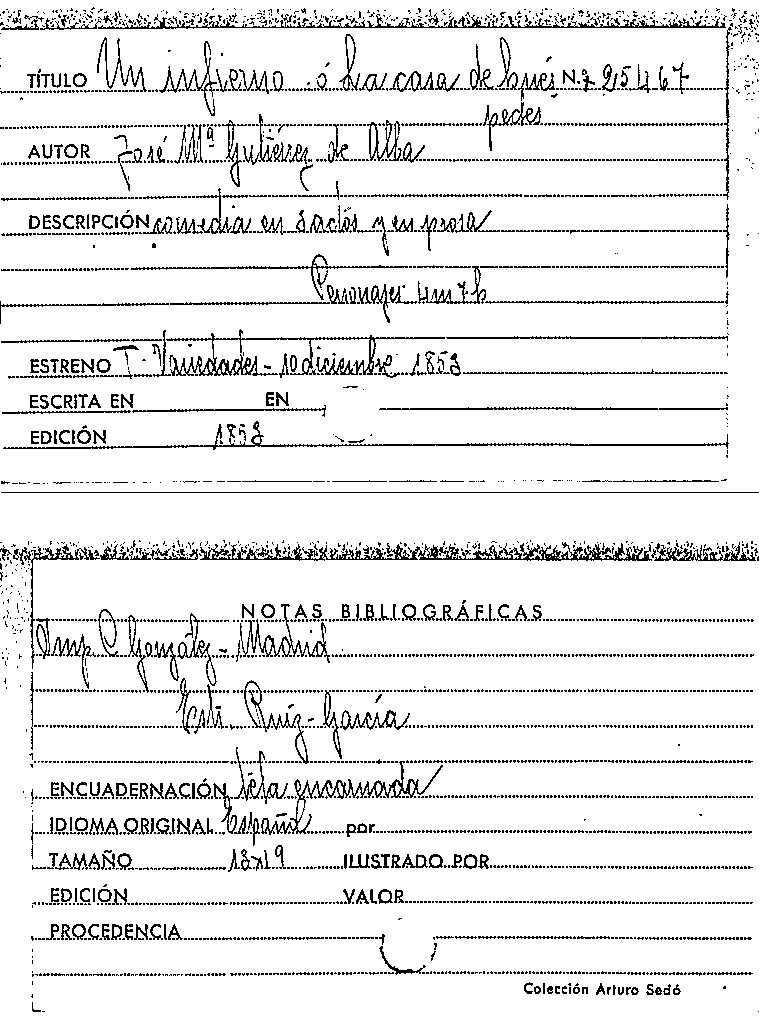 TÍTULO Un infierno ó La casa de hués N.º 25467
pedes
AUTOR José Mª Gutiérrez de Alba
DESCRIPCIÓN comedia en 3 actos y en prosa
Personajes 4m 7h
ESTRENO T. Variedades - 10 diciembre 1853
ESCRITA EN EN
EDICIÓN 1853
NOTAS BIBLIOGRÁFICAS
Imp. C. González - Madrid
Ruiz - García
ENCUADERNACIÓN tela encarnada
IDIOMA ORIGINAL Español por
TAMAÑO 13x19 ILUSTRADO POR
EDICIÓN VALOR
PROCEDENCIA
Colección Arturo Sedó